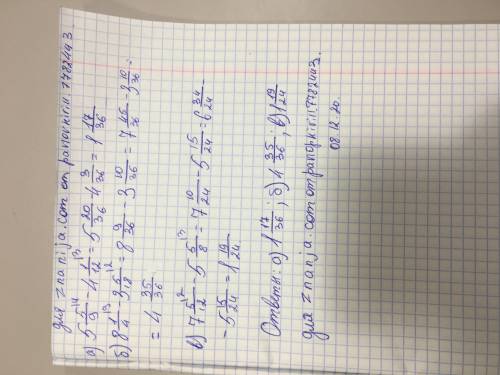 для znanija.com от panovkirill7782443.
а) 5 5/9 ¹⁴ - 4 1/12 ¹³ = 5 20/36 - 4 3/36 = 1 17/36
б) 8 1/4 ¹³ - 3 5/18 ¹² = 8 9/36 - 3 10/36 = 7 45/36 - 3 10/36 =
= 4 35/36
в) 7 5/12 ¹² - 5 5/8 ¹³ = 7 10/24 - 5 15/24 = 6 34/24 -
- 5 15/24 = 1 19/24
Ответы: а) 1 17/36; б) 4 35/36; в) 1 19/24
для znanija.com от panovkirill7782443.
08.12.20.